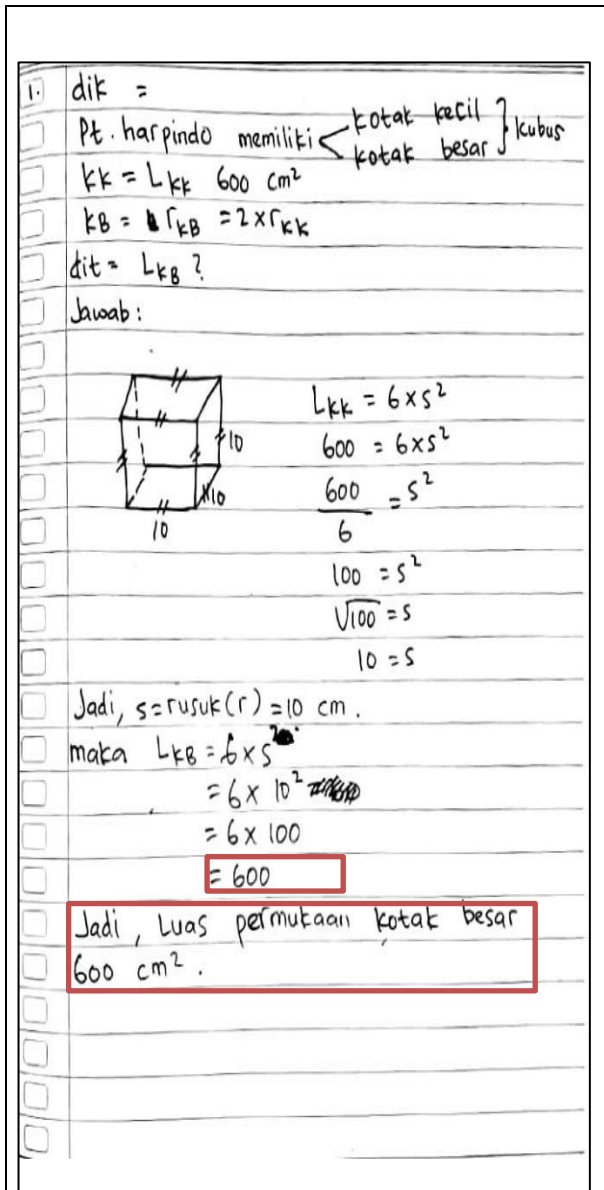 1. dik =
Pt. harpindo memiliki < kotak kecil
kotak besar } kubus
kk = Lkk 600 cm²
kB = rKB = 2 x rKK
dit = LKB ?
Jawab :
10
10
10
Lkk = 6 x s²
600 = 6 x s²
600/6 = s²
100 = s²
√100 = s
10 = s
Jadi, s = rusuk (r) = 10 cm.
maka LKB = 6 x s²
= 6 x 10²
= 6 x 100
= 600
Jadi, Luas permukaan kotak besar
600 cm².